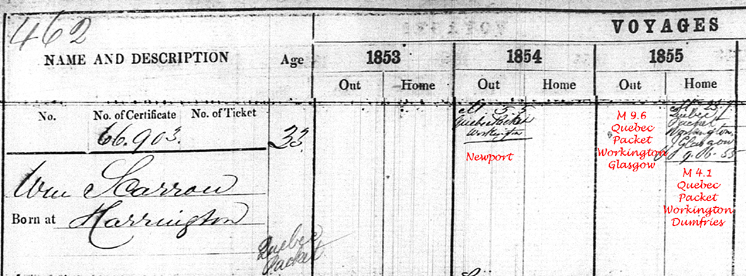 462
VOYAGES
NAME AND DESCRIPTION
Age
1853
1854
1855
Out
Home
Out
Home
Out
Home
No.
No. of Certificate
No. of Ticket
66.903.
33
Quebec Packet
Workington
Newport
M 9.6
Quebec
Packet
Workington
Glasgow
Quebec
Packet
Workington
Glasgow
9-06-55
M 4.1
Quebec
Packet
Workington
Dumfries
Wm Scarrow
Born at Harrington
Quebec
Packet